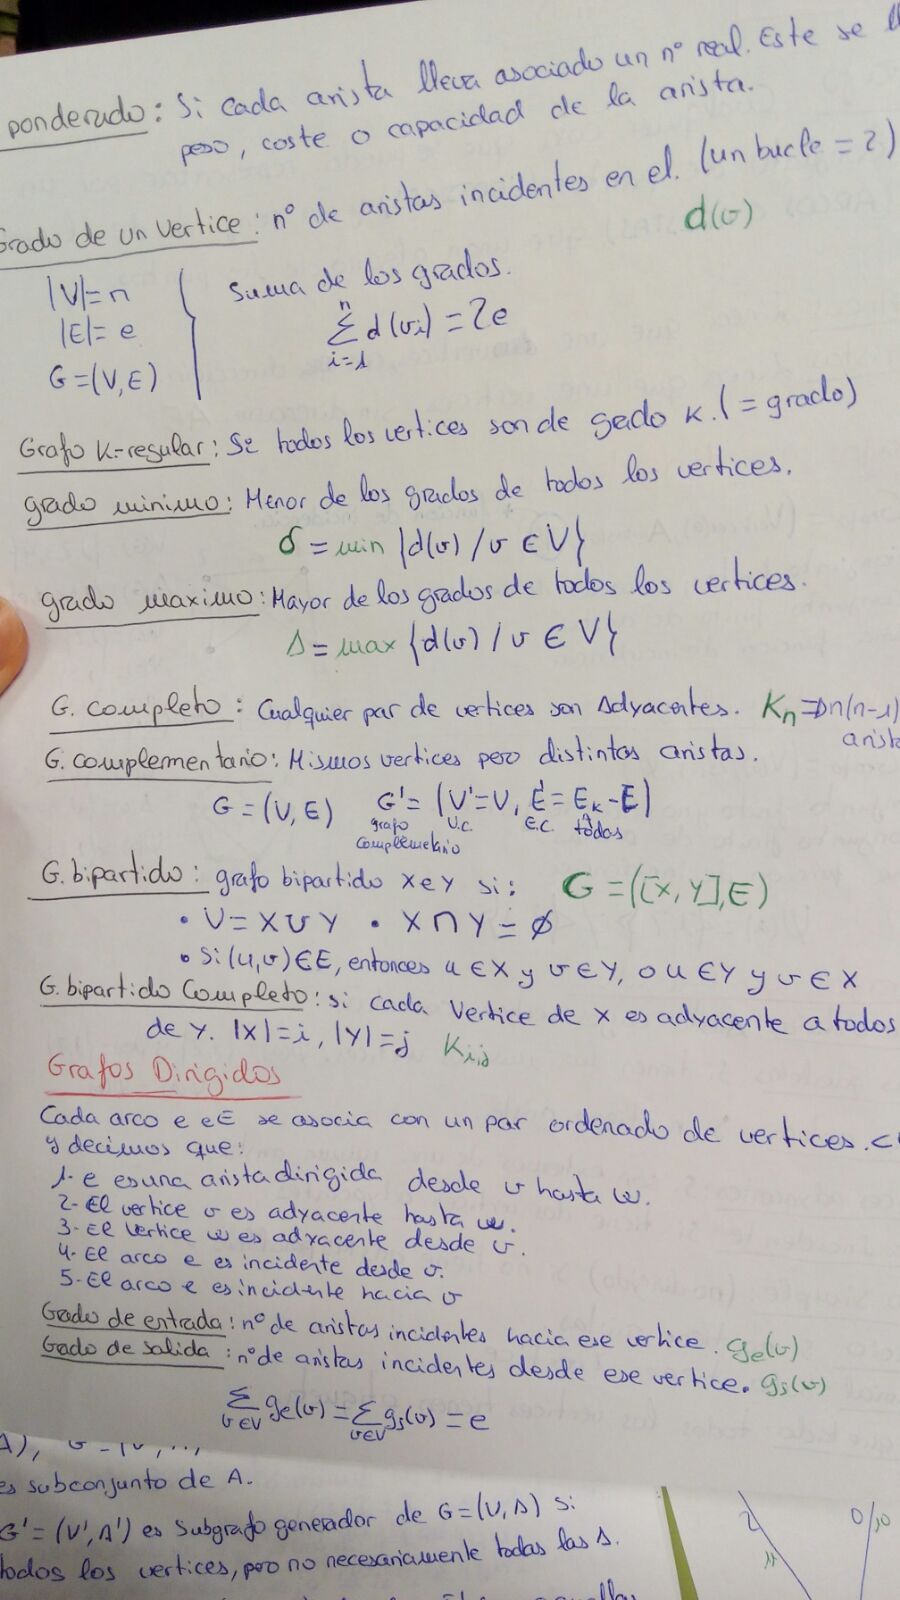 ponderado: Si cada arista lleva asociado un nº real. Este se ll
peso, coste o capacidad de la arista.
Grado de un vertice: nº de aristas incidentes en el. (un bucle = 2)
d(v)
|V|=n
|E|= e
G=(V,E)
Suma de los grados.
n
∑ d(vi) = 2e
i=1
Grafo K-regular: Si todos los vertices son de gado K. (= grado)
grado minimo: Menor de los grados de todos los vertices.
δ = min {d(v) / v ∈ V}
grado maximo: Mayor de los grados de todos los vertices.
Δ = max {d(v) / v ∈ V}
G. completo: Cualquier par de vertices son Adyacentes. Kn ⇒ n(n-1)
arist
G. complementario: Mismos vertices pero distintas aristas.
G = (V, E) G' = (V'=V, E' = Ek - E)
grafo V.C. E.C. todas
complemetario
G. bipartido: grafo bipartido X e Y si: G = ([X, Y], E)
• V = X ∪ Y • X ∩ Y = ∅
• Si (u,v) ∈ E, entonces u ∈ X y v ∈ Y, o u ∈ Y y v ∈ X
G. bipartido Completo: si cada Vertice de X es adyacente a todos
de Y. |X|=i, |Y|=j Ki,j
Grafos Dirigidos
Cada arco e e∈E se asocia con un par ordenado de vertices.
y decimos que:
1- e es una arista dirigida desde v hasta w.
2- El vertice v es adyacente hasta w.
3- El vertice w es adyacente desde v.
4- El arco e es incidente desde v.
5- El arco e es incidente hacia v
Gado de entrada: nº de aristas incidentes hacia ese vertice. ge(v)
Gado de salida: nº de aristas incidentes desde ese vertice. gs(v)
∑ ge(v) = ∑ gs(v) = e
v∈V v∈V
es subconjunto de A.
G' = (V', A') es subgrafo generador de G = (V, A) si
todos los vertices, pero no necesariamente todas las A.